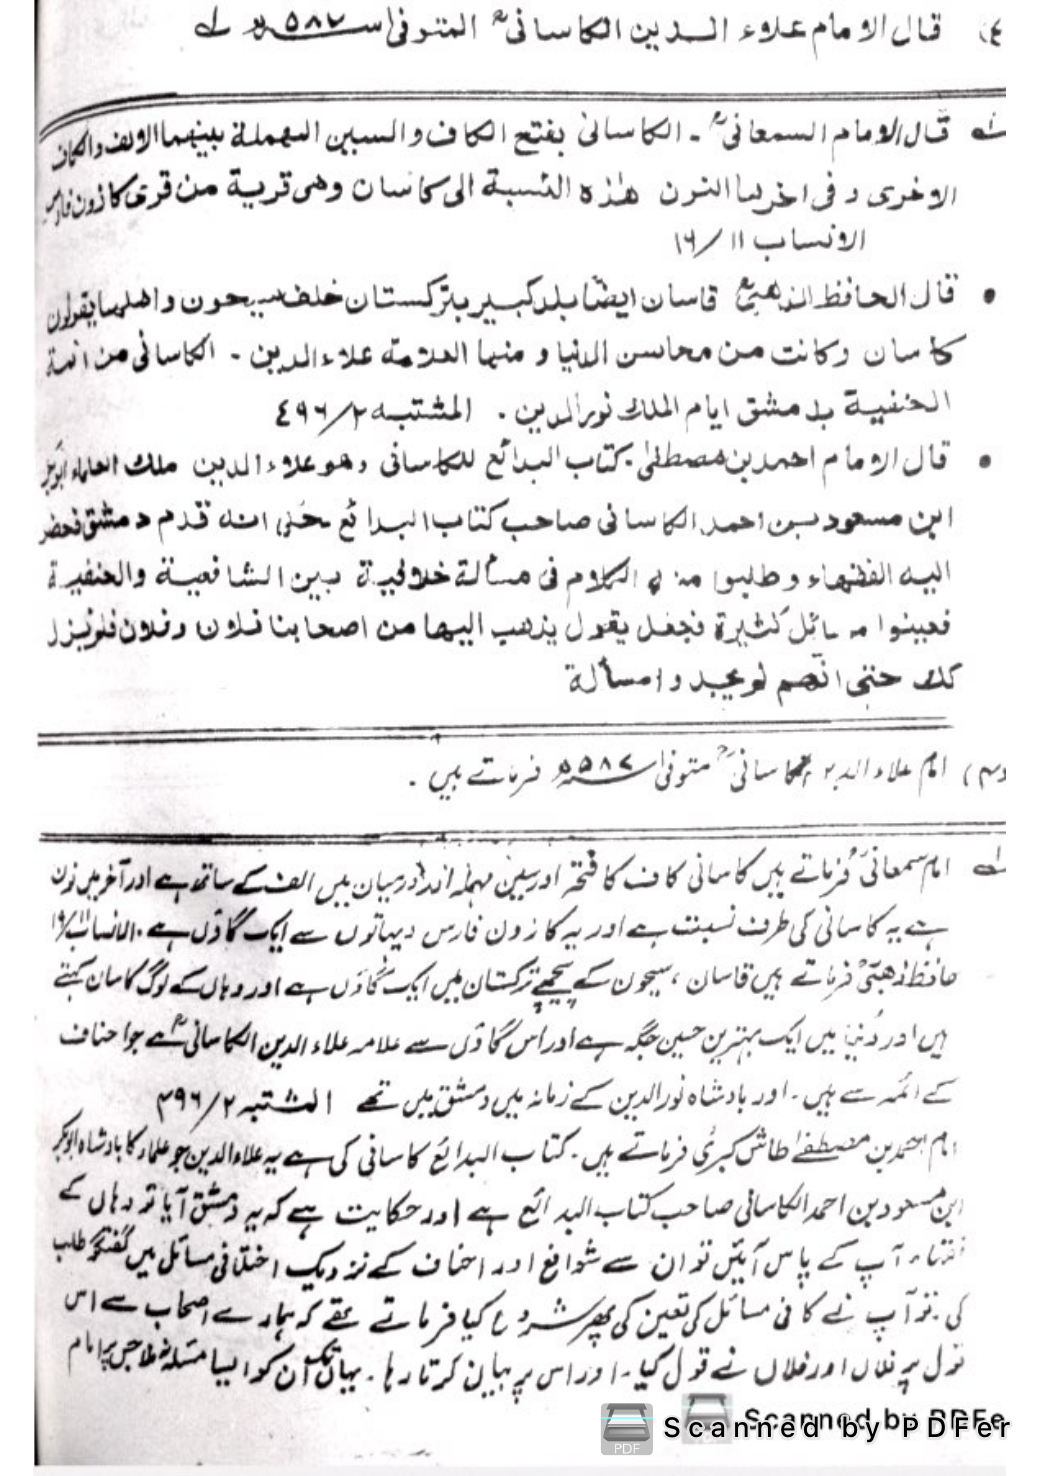 (٤ قال الامام علاء الدين الكاسانیؒ المتوفی ٥٨٧ھ ؂
؂ قال الامام السمعانیؒ ۔ الكاسانی بفتح الكاف والسین المهملة بینهما الالف والكاف
الاخری و فی اخرها النون هذه النسبة الی كاسان وهی قریة من قری كازون فارس
الانساب ١١/ ١٦
• قال الحافظ الذهبیؒ قاسان ایضًا بلد كبیر بتركستان خلف سیحون واهلها یقولون
كاسان وكانت من محاسن الدنیا و منها العلامة علاء الدین ۔ الكاسانی من ائمة
الحنفیة بدمشق ایام الملك نور الدین ۔ المشتبه ٢/ ٤٩٦
• قال الامام احمد بن مصطفیٰ كتاب البدائع للكاسانی وهو علاء الدین ملك العلماء ابوبكر
ابن مسعود بن احمد الكاسانی صاحب كتاب البدائع حكی انه قدم دمشق فحضر
الیه الفقهاء وطلبوا منه الكلام فی مسألة خلافیة بین الشافعیة والحنفیة
فعینوا مسائل كثیرة فجعل یقول یذهب الیها من اصحابنا فلان وفلان فلم یزل
كذلك حتی انهم لم یجدوا مسألة
(٤) امام علاء الدین كاسانیؒ متوفی ٥٨٧ھ فرماتے ہیں ۔
؂ امام سمعانیؒ فرماتے ہیں کاسانی کاف کا فتحہ اور سین مہملہ اور درمیان میں الف کے ساتھ ہے اور آخر میں نون
ہے یہ کاسانی کی طرف نسبت ہے اور یہ کازون فارس دیہاتوں سے ایک گاؤں ہے ۔ الانساب ١١/
حافظ ذھبیؒ فرماتے ہیں قاسان ، سیحون کے پیچھے ترکستان میں ایک گاؤں ہے اور وہاں کے لوگ کاسان کہتے
ہیں اور دُنیا میں ایک بہترین حسین جگہ ہے اور اس گاؤں سے علامہ علاء الدین الکاسانیؒ ہے جو احناف
کے ائمہ سے ہیں ۔ اور بادشاہ نور الدین کے زمانہ میں دمشق میں تھے المشتبہ ٢/ ٤٩٦
امام احمد بن مصطفےٰ طاش کبریٰ فرماتے ہیں ۔ کتاب البدائع کاسانی کی ہے یہ علاء الدین جو علماء کا بادشاہ ابوبکر
ابن مسعود بن احمد الکاسانی صاحب کتاب البدائع ہے اور حکایت ہے کہ یہ دمشق آیا تو وہاں کے
فقہاء آپ کے پاس آئیں تو ان سے شوافع اور احناف کے نزدیک اختلافی مسائل میں گفتگو طلب
کی تو آپ نے کافی مسائل کی تعین کی پھر شروع کیا فرماتے تھے کہ ہمارے اصحاب سے اس
قول پر فلاں اور فلاں نے قول کیا ۔ اور اس پر بیان کرتا رہا ۔ یہاں تک ان کو ایسا مسئلہ نہ ملا جس پر امام
Scanned by PDFe
Scanned by PDFer
PDF